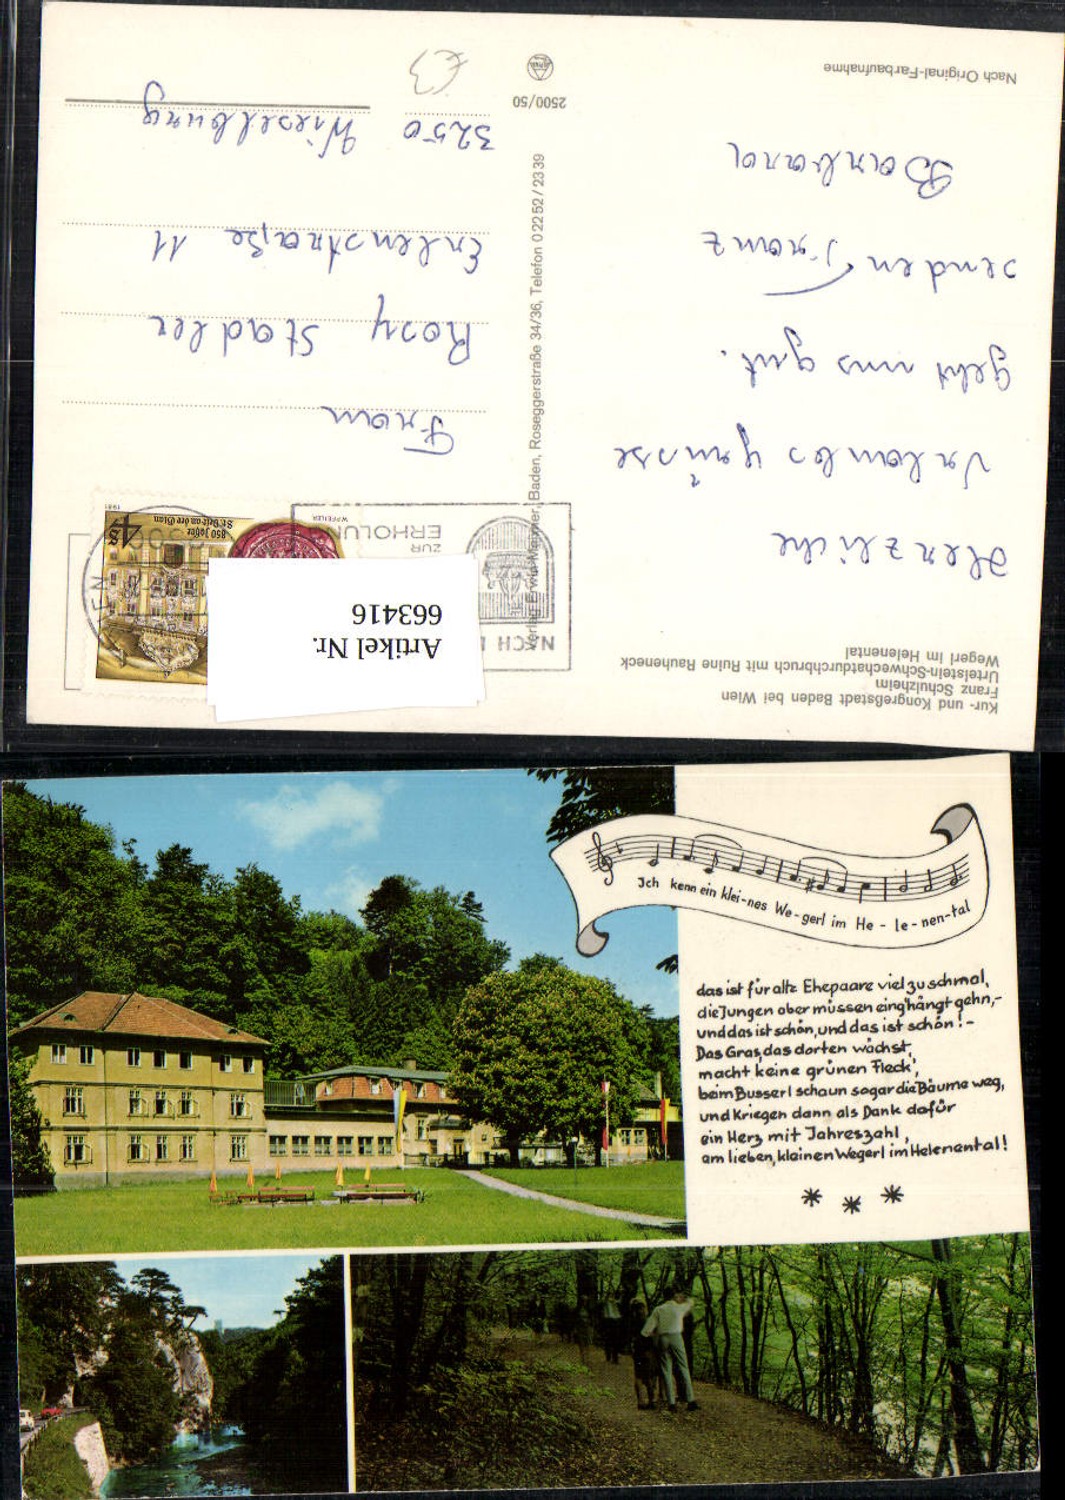 Kur- und Kongreßstadt Baden bei Wien
Franz Schulzheim
Urtelstein-Schwechatdurchbruch mit Ruine Rauheneck
Wegerl im Helenental
Herzliche
Urlaubsgrüsse
geht uns gut.
senden Franz
Barbara
Nach Original-Farbaufnahme
Baden, Roseggerstraße 34/36, Telefon 0 22 52 / 23 39
2500/50
NACH
ZUR
ERHOLUNG
850 Jahre
St. Veit an der Glan
4 S
1981
W. PFEILER
Artikel Nr.
663416
Frau
Rosy Stadler
Erlenstraße 11
3250 Wieselburg
€3
Ich kenn ein klei-nes We-gerl im He-le-nen-tal
das ist für alte Ehepaare viel zu schmal,
die Jungen aber müssen eing'hängt gehn,-
und das ist schön, und das ist schön!-
Das Gras, das dorten wächst,
macht keine grünen Fleck',
beim Busserl schaun sogar die Bäume weg,
und kriegen dann als Dank dafür
ein Herz mit Jahreszahl,
am lieben, kleinen Wegerl im Helenental!